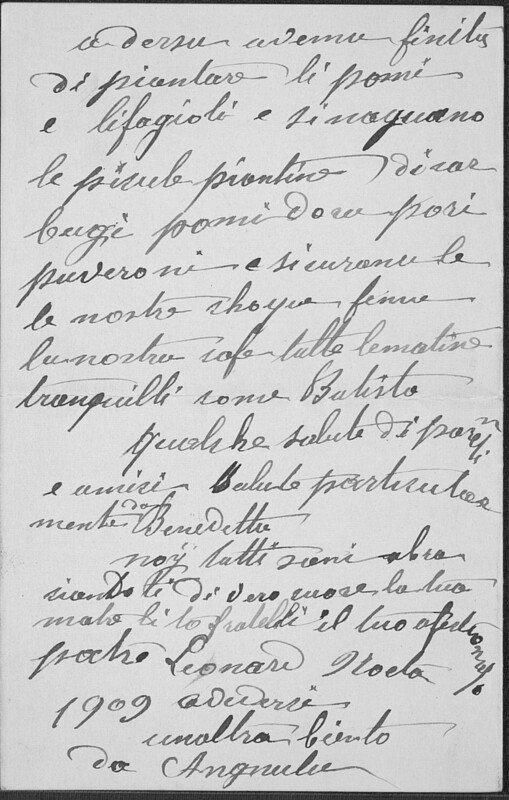 adersu avemu finitu
di piantare li pomi
e lifagioli e sinaquano
le picule piantine di car
bugi pomi doru pori
puveroni e sicuranu le
le nostre choque fenne
la nostra cafe tutte lematine
tranquilli come Batista
qualche salute di parenti
e amici Salute particular
mente da Benedetta
noij tutti sani abra
ciandoti di vero cuore la tua
matre li to fratelli il tuo afectionato
patre Leonard
1909 adederci
unaltra biento
da Angnulu